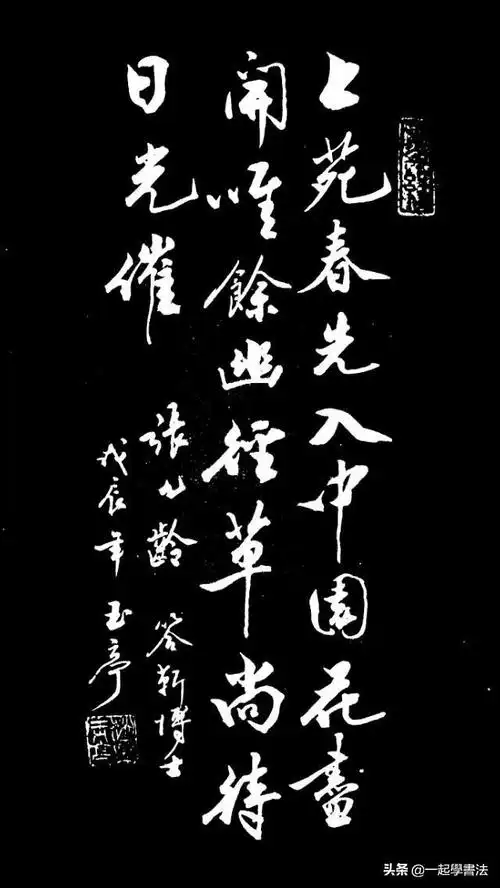 上苑春先入中園花盡
開唯餘幽徑草尚待
日光催
張九齡 答靳博士
戊辰年 玉亭
头条 @一起學書法